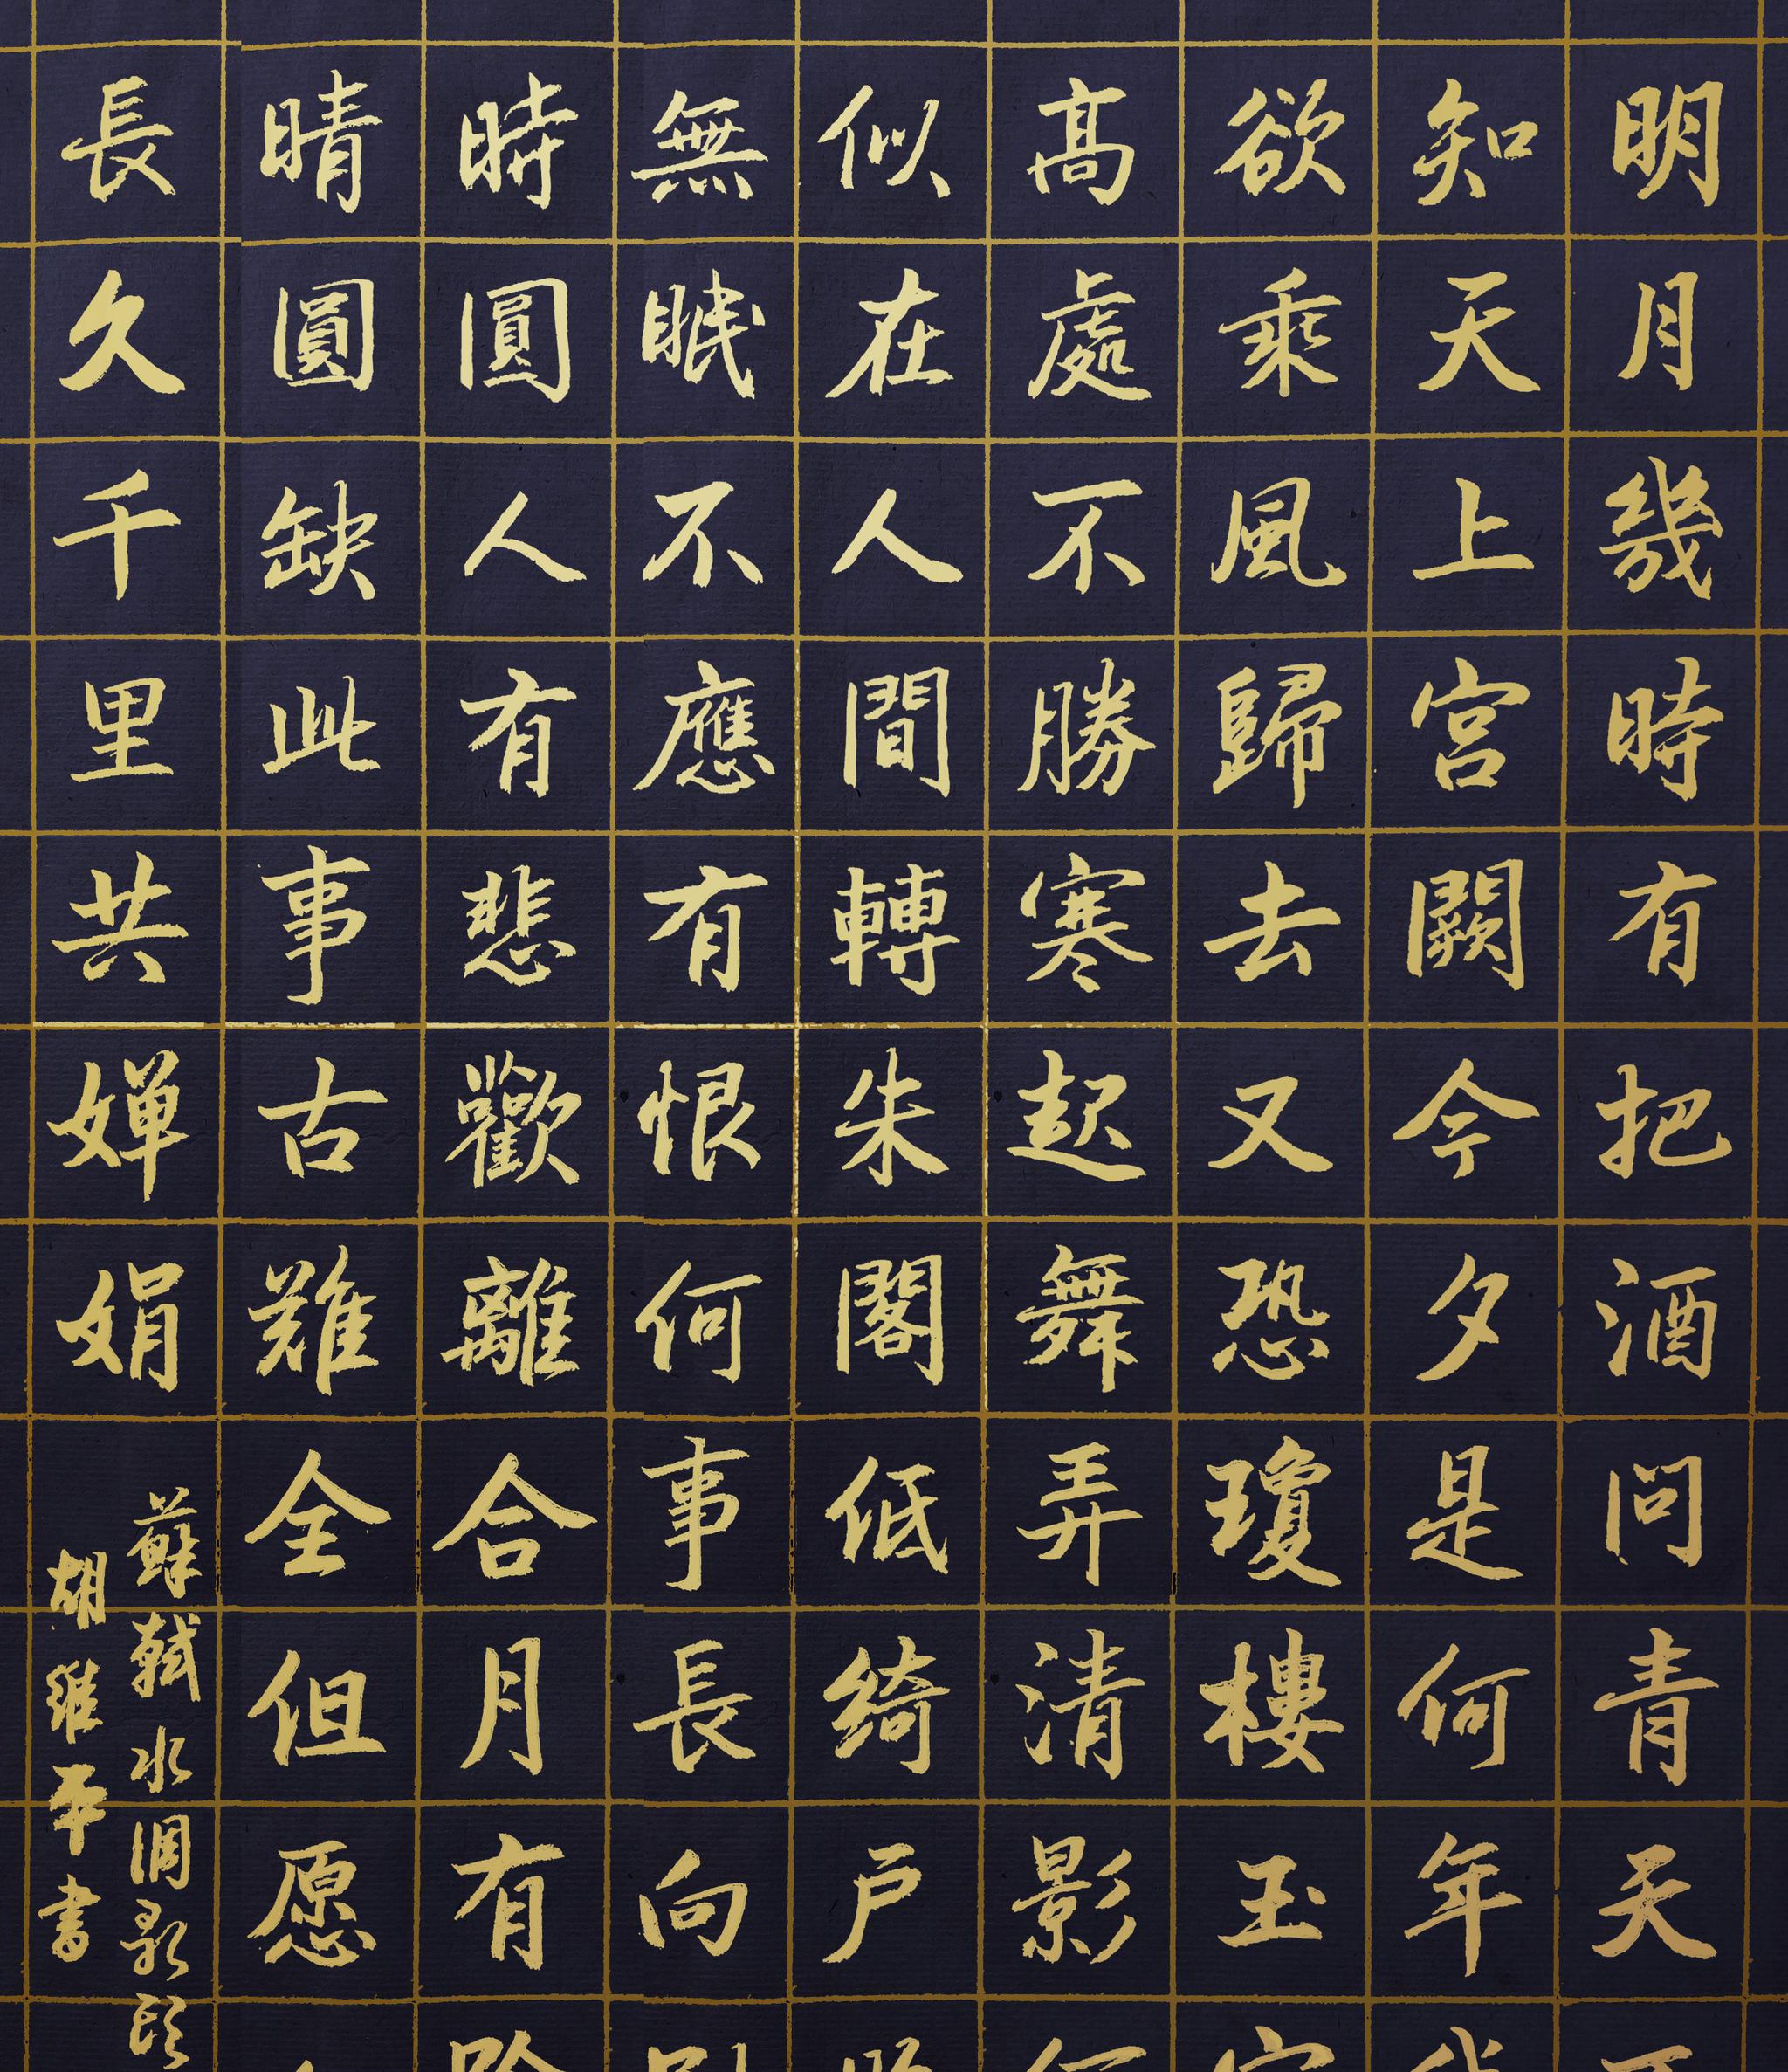 明月幾時有把酒问青天
知天上宫闕今夕是何年
欲乘風歸去又恐瓊樓玉
髙處不勝寒起舞弄清影
似在人間轉朱閣低绮户
無眠不應有恨何事長向
時圓人有悲歡離合月有
晴圓缺此事古難全但愿
長久千里共嬋娟
蘇軾水調歌頭
胡维平書